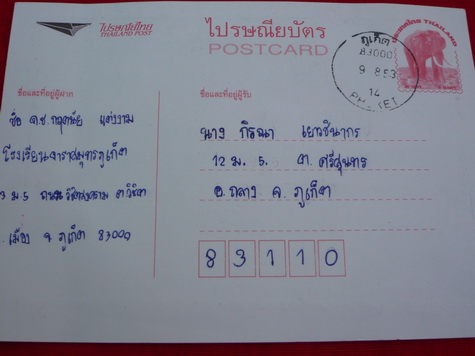 ไปรษณีย์ไทย
THAILAND POST
ไปรษณียบัตร
POSTCARD
ประเทศไทย THAILAND
ภูเก็ต
83000
9 8 53
14
PHUKET
ชื่อและที่อยู่ผู้ฝาก
ชื่อ ด.ช
โรงเรียนดาราสมุทรภูเก็ต
3 ม 5 ถนน ต วิชิต
เมือง จ ภูเก็ต 83000
ชื่อและที่อยู่ผู้รับ
นาง กิรณา เยาวชินากร
12 ม. 5. ต. ศรีสุนทร
อ. ถลาง จ. ภูเก็ต
83110